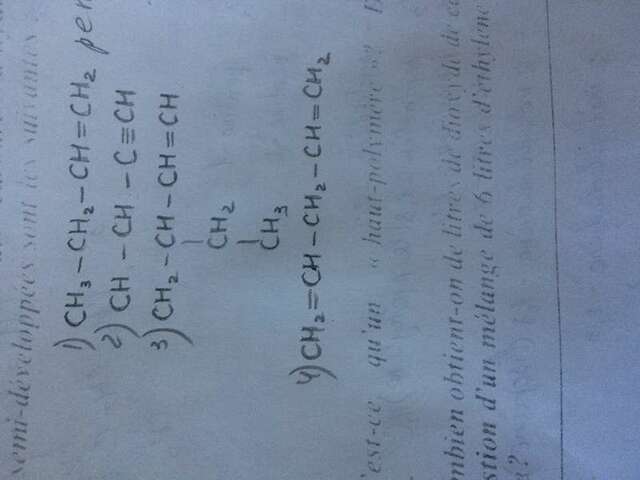 semi-développées sont les suivantes
1) CH₃-CH₂-CH=CH₂ per
2) CH-CH-C≡CH
3) CH₂-CH-CH=CH
CH₂
CH₃
4) CH₂=CH-CH₂-CH=CH₂
est-ce qu'un « haut-polymère »?
mbien obtient-on de litres de dioxyde de
stion d'un mélange de 6 litres d'éthylène